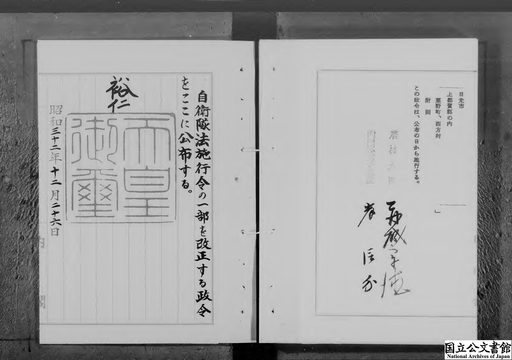 日光市
上都賀郡の内
粟野町、西方村
附則
この政令は、公布の日から施行する。
自衛隊法施行令の一部を改正する政令
をここに公布する。
裕仁
天皇
御璽
昭和三十二年十二月二十六日
国立公文書館
National Archives of Japan